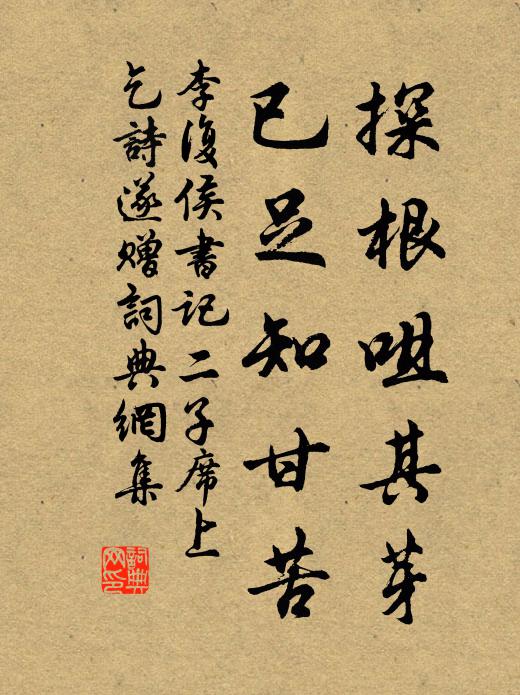 探根咀其芽
已足知甘苦
李復侯書記二子席上
乞詩遂赠詞典網集
詞典
网印